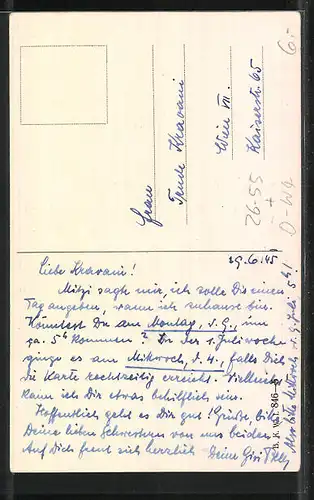 Frau
Trude Kravani
Wien VII.
Kaiserstr. 65
6.-
26-55
+
29.6.45
Liebe Kravani!
Mitzi sagte mir, ich solle Dir einen
Tag angeben, wann ich zuhause bin.
Könntest Du am Montag, d. 9., um
ca. 5h kommen? In der 1. Juliwoche
ginge es am Mittwoch, d. 4., falls Dich
die Karte rechtzeitig erreicht. Vielleicht
kann ich Dir etwas behilflich sein.
Hoffentlich geht es Dir gut! Grüße, bitte
Deine lieben Schwestern von uns beiden.
Auf Dich freut sich herzlich Deine
Also bitte Mittwoch, d. Juli 5h!
B. K. W. I. 846